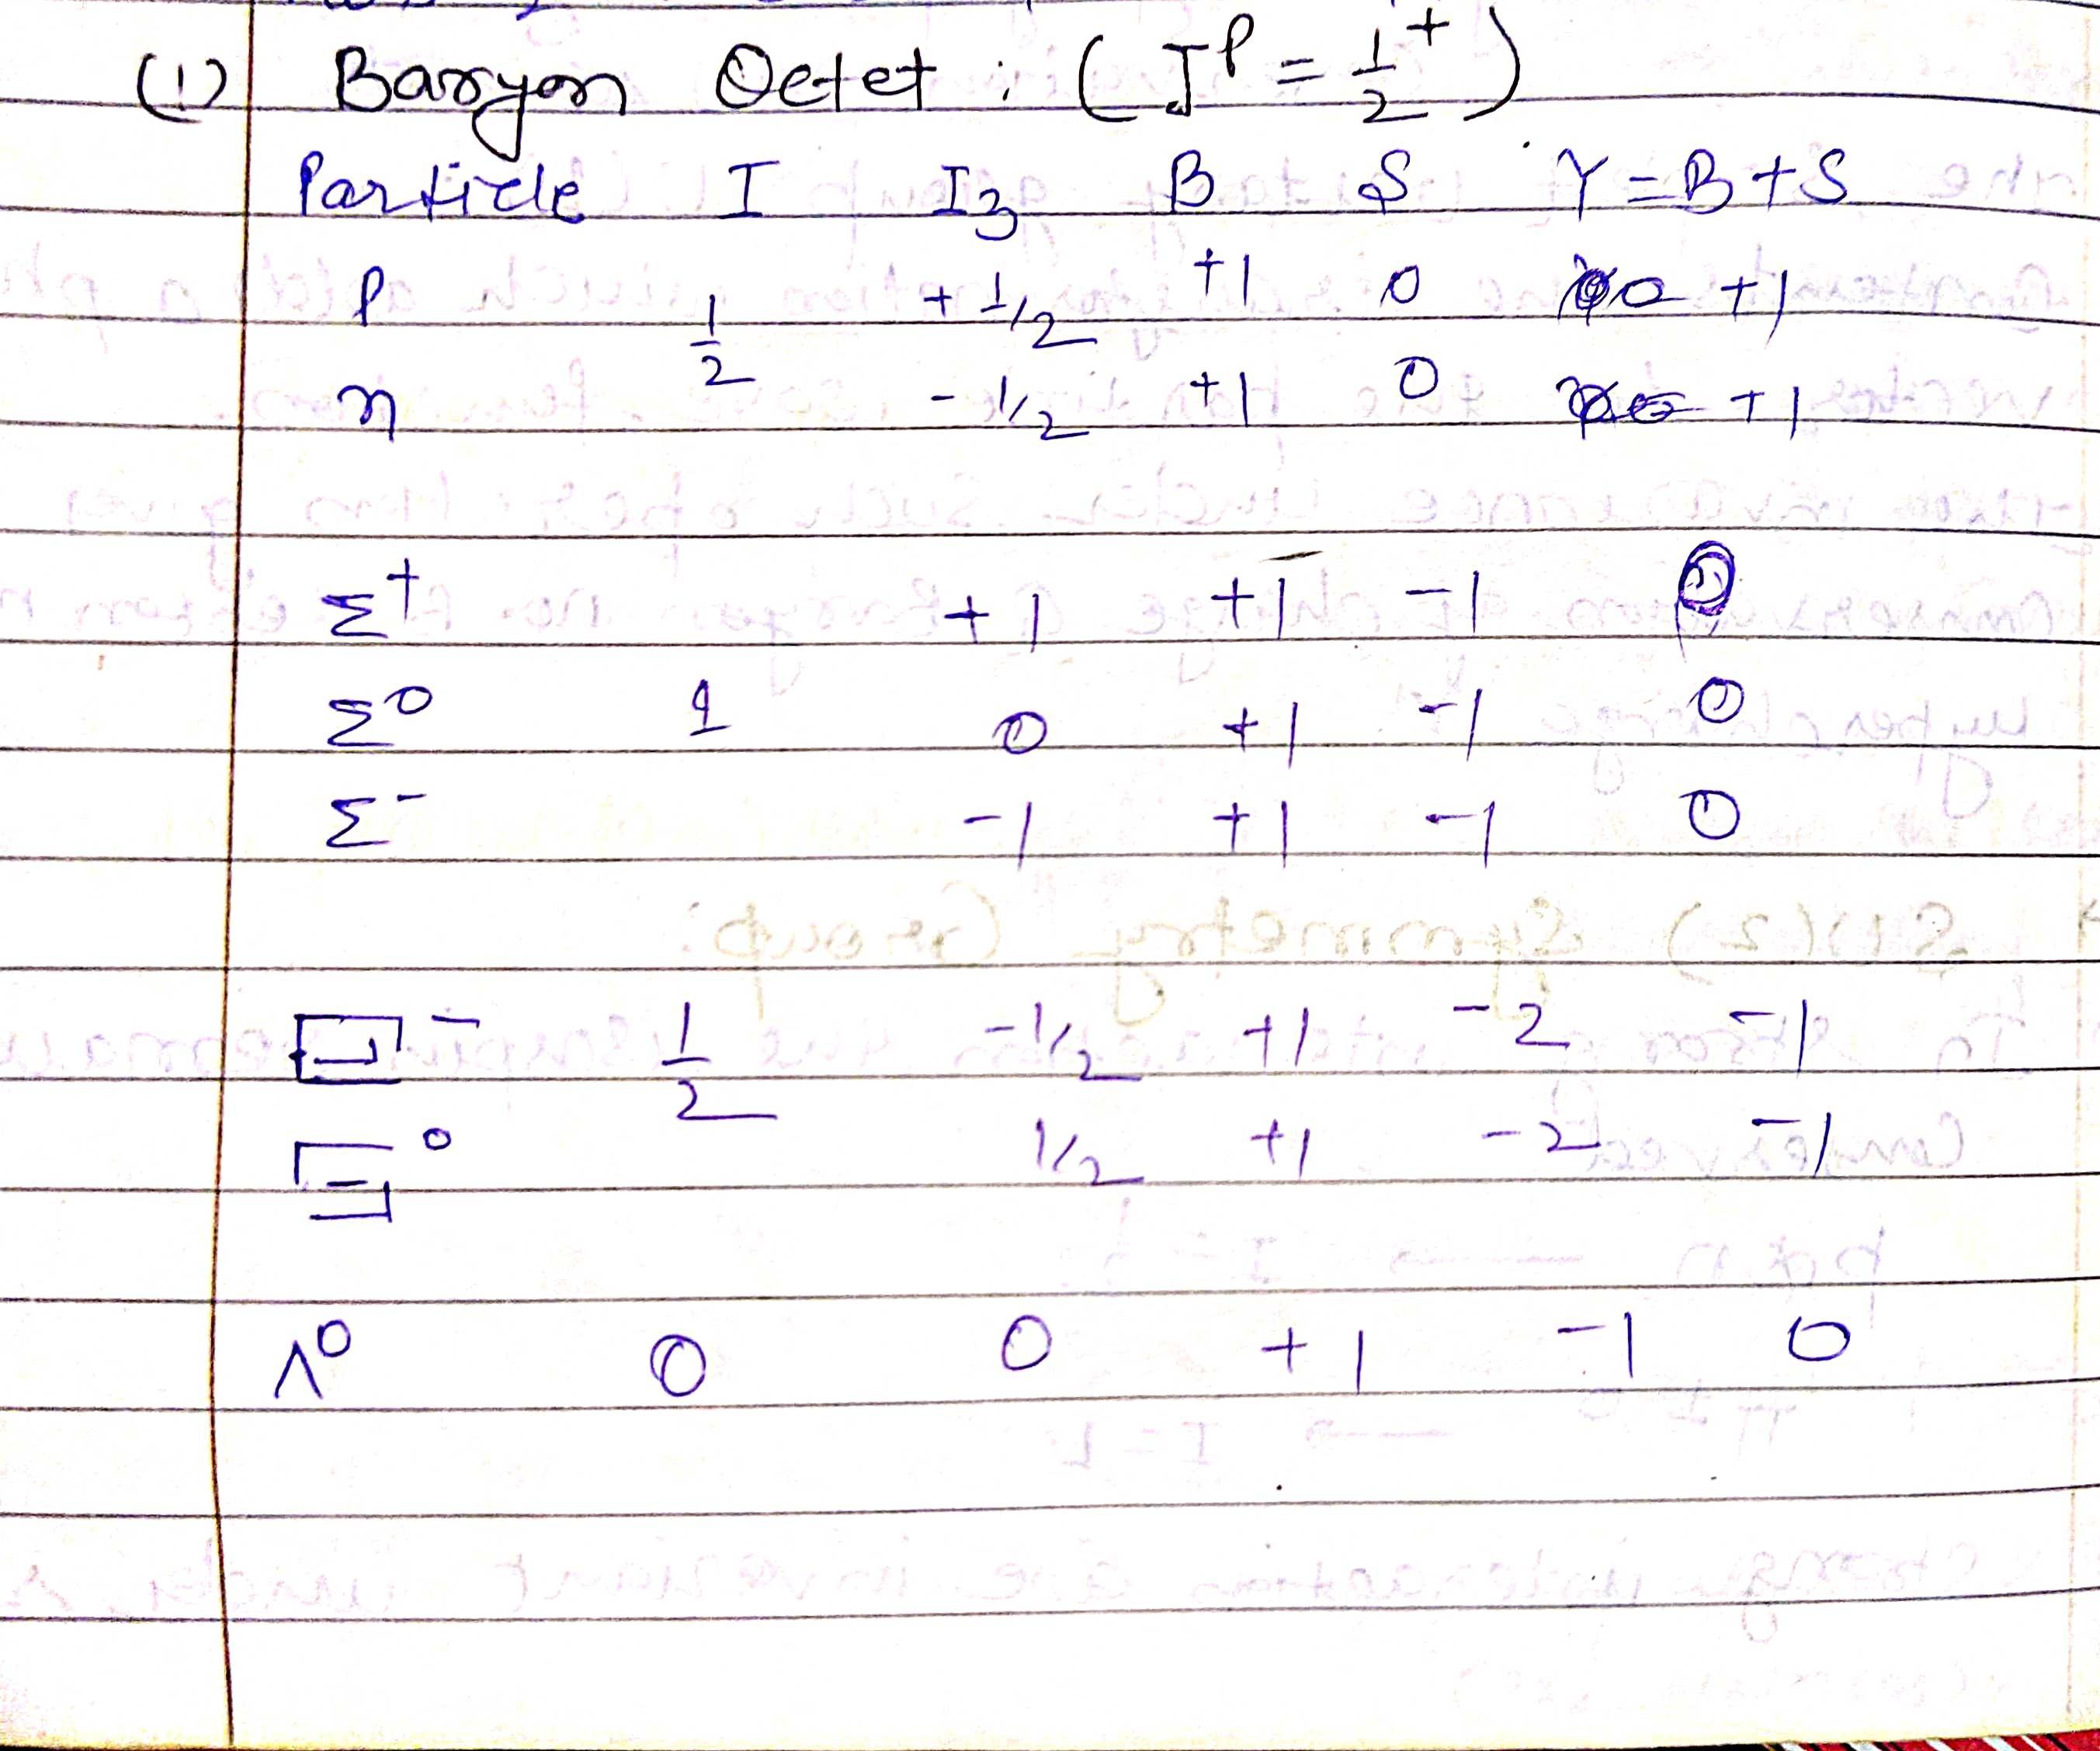 (1) Baryon Octet : (J^P = 1/2^+)
Particle I I3 B S Y = B + S
P 1/2 + 1/2 +1 0 +1
n - 1/2 +1 0 +1
Σ+ +1 +1 -1 0
Σ0 1 0 +1 -1 0
Σ- -1 +1 -1 0
Ξ- 1/2 -1/2 +1 -2 -1
Ξ0 1/2 +1 -2 -1
Λ0 0 0 +1 -1 0